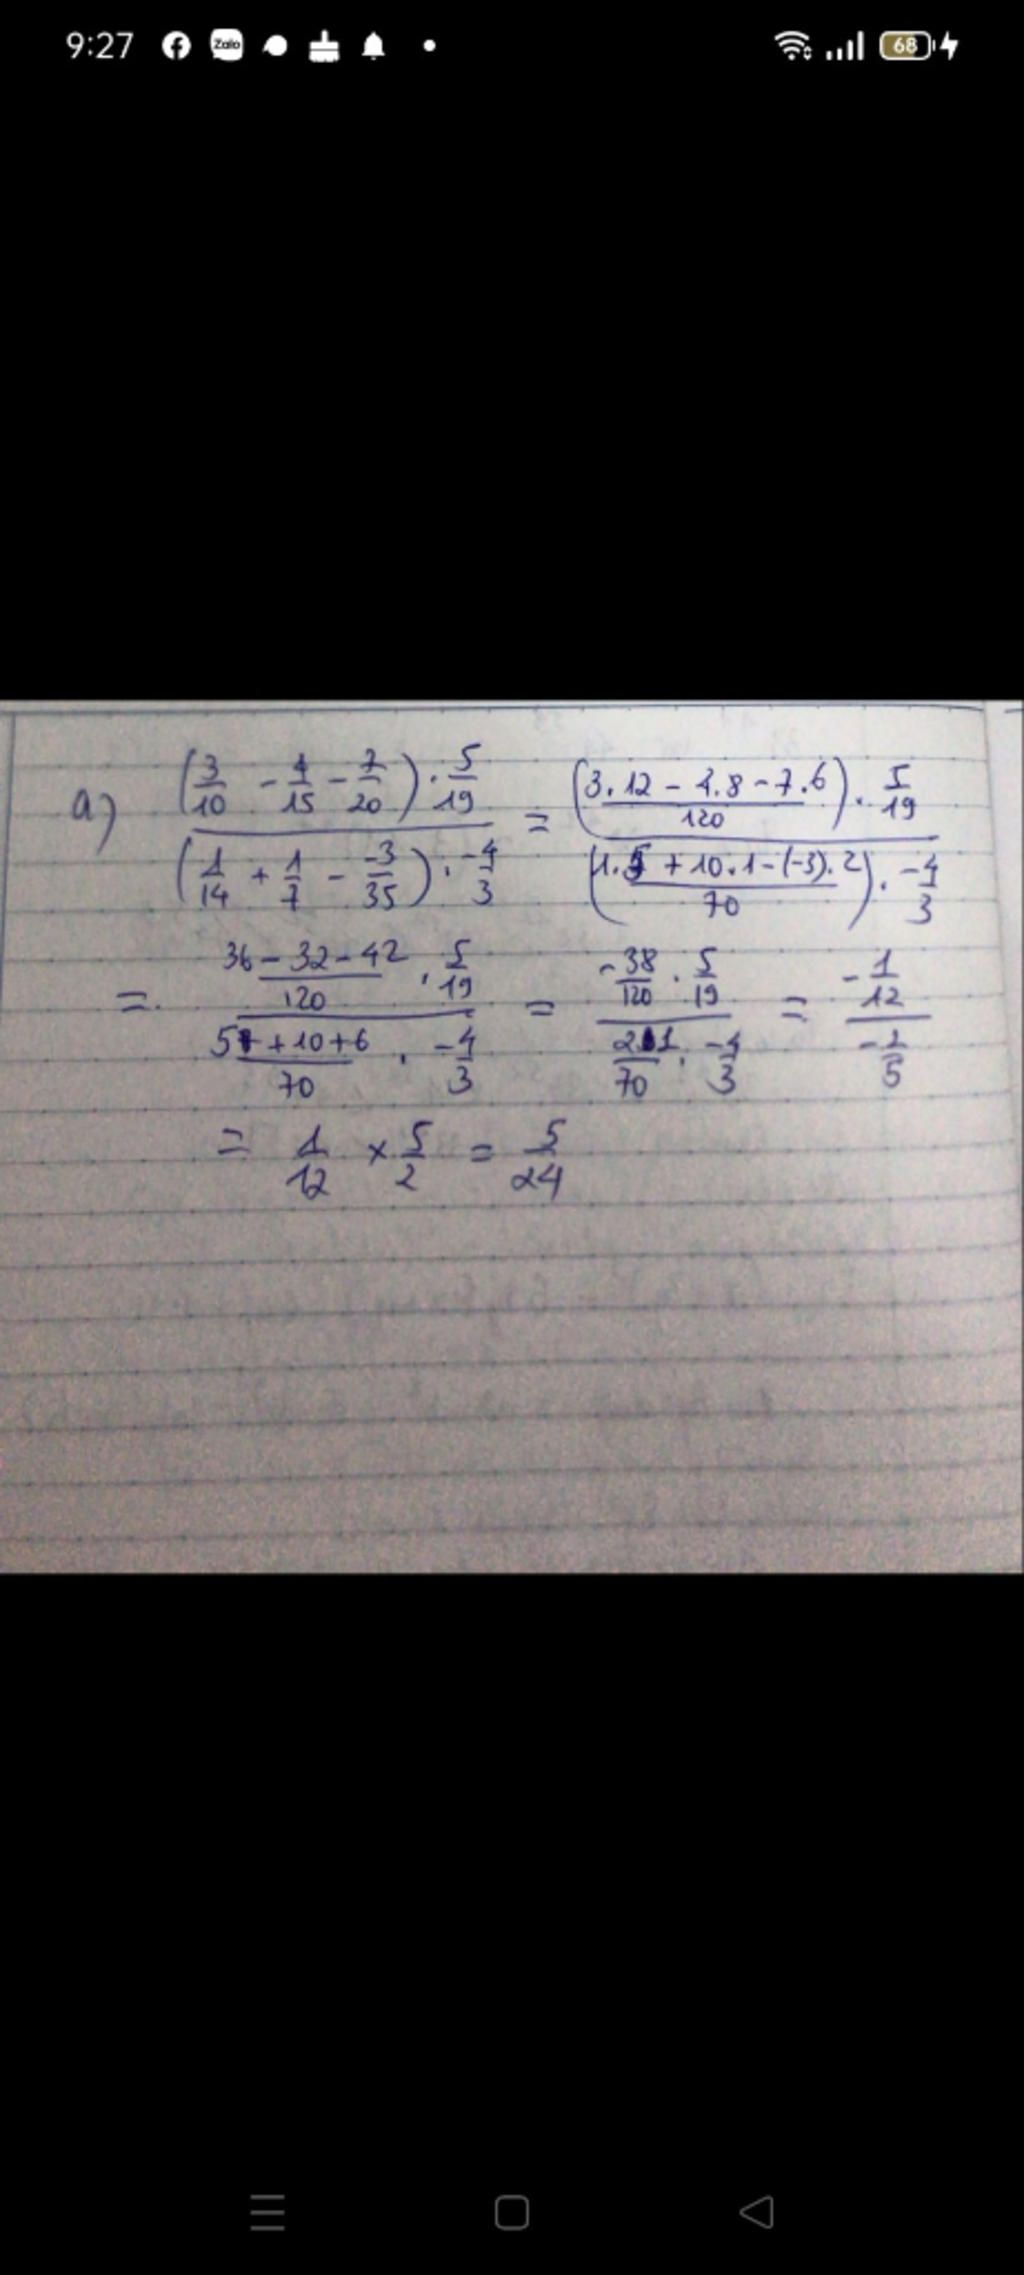 9:27 Zalo 68
a) (3/10 - 4/15 - 7/20) . 5/19 / (1/14 + 1/7 - -3/35) . -4/3 = (3.12 - 4.8 - 7.6 / 120) . 5/19 / (1.5 + 10.1 - (-3).2 / 70) . -4/3
= 36 - 32 - 42 / 120 . 5/19 / 5 + 10 + 6 / 70 . -4/3 = -38/120 . 5/19 / 21/70 . -4/3 = -1/12 / -2/5
= 1/12 × 5/2 = 5/24